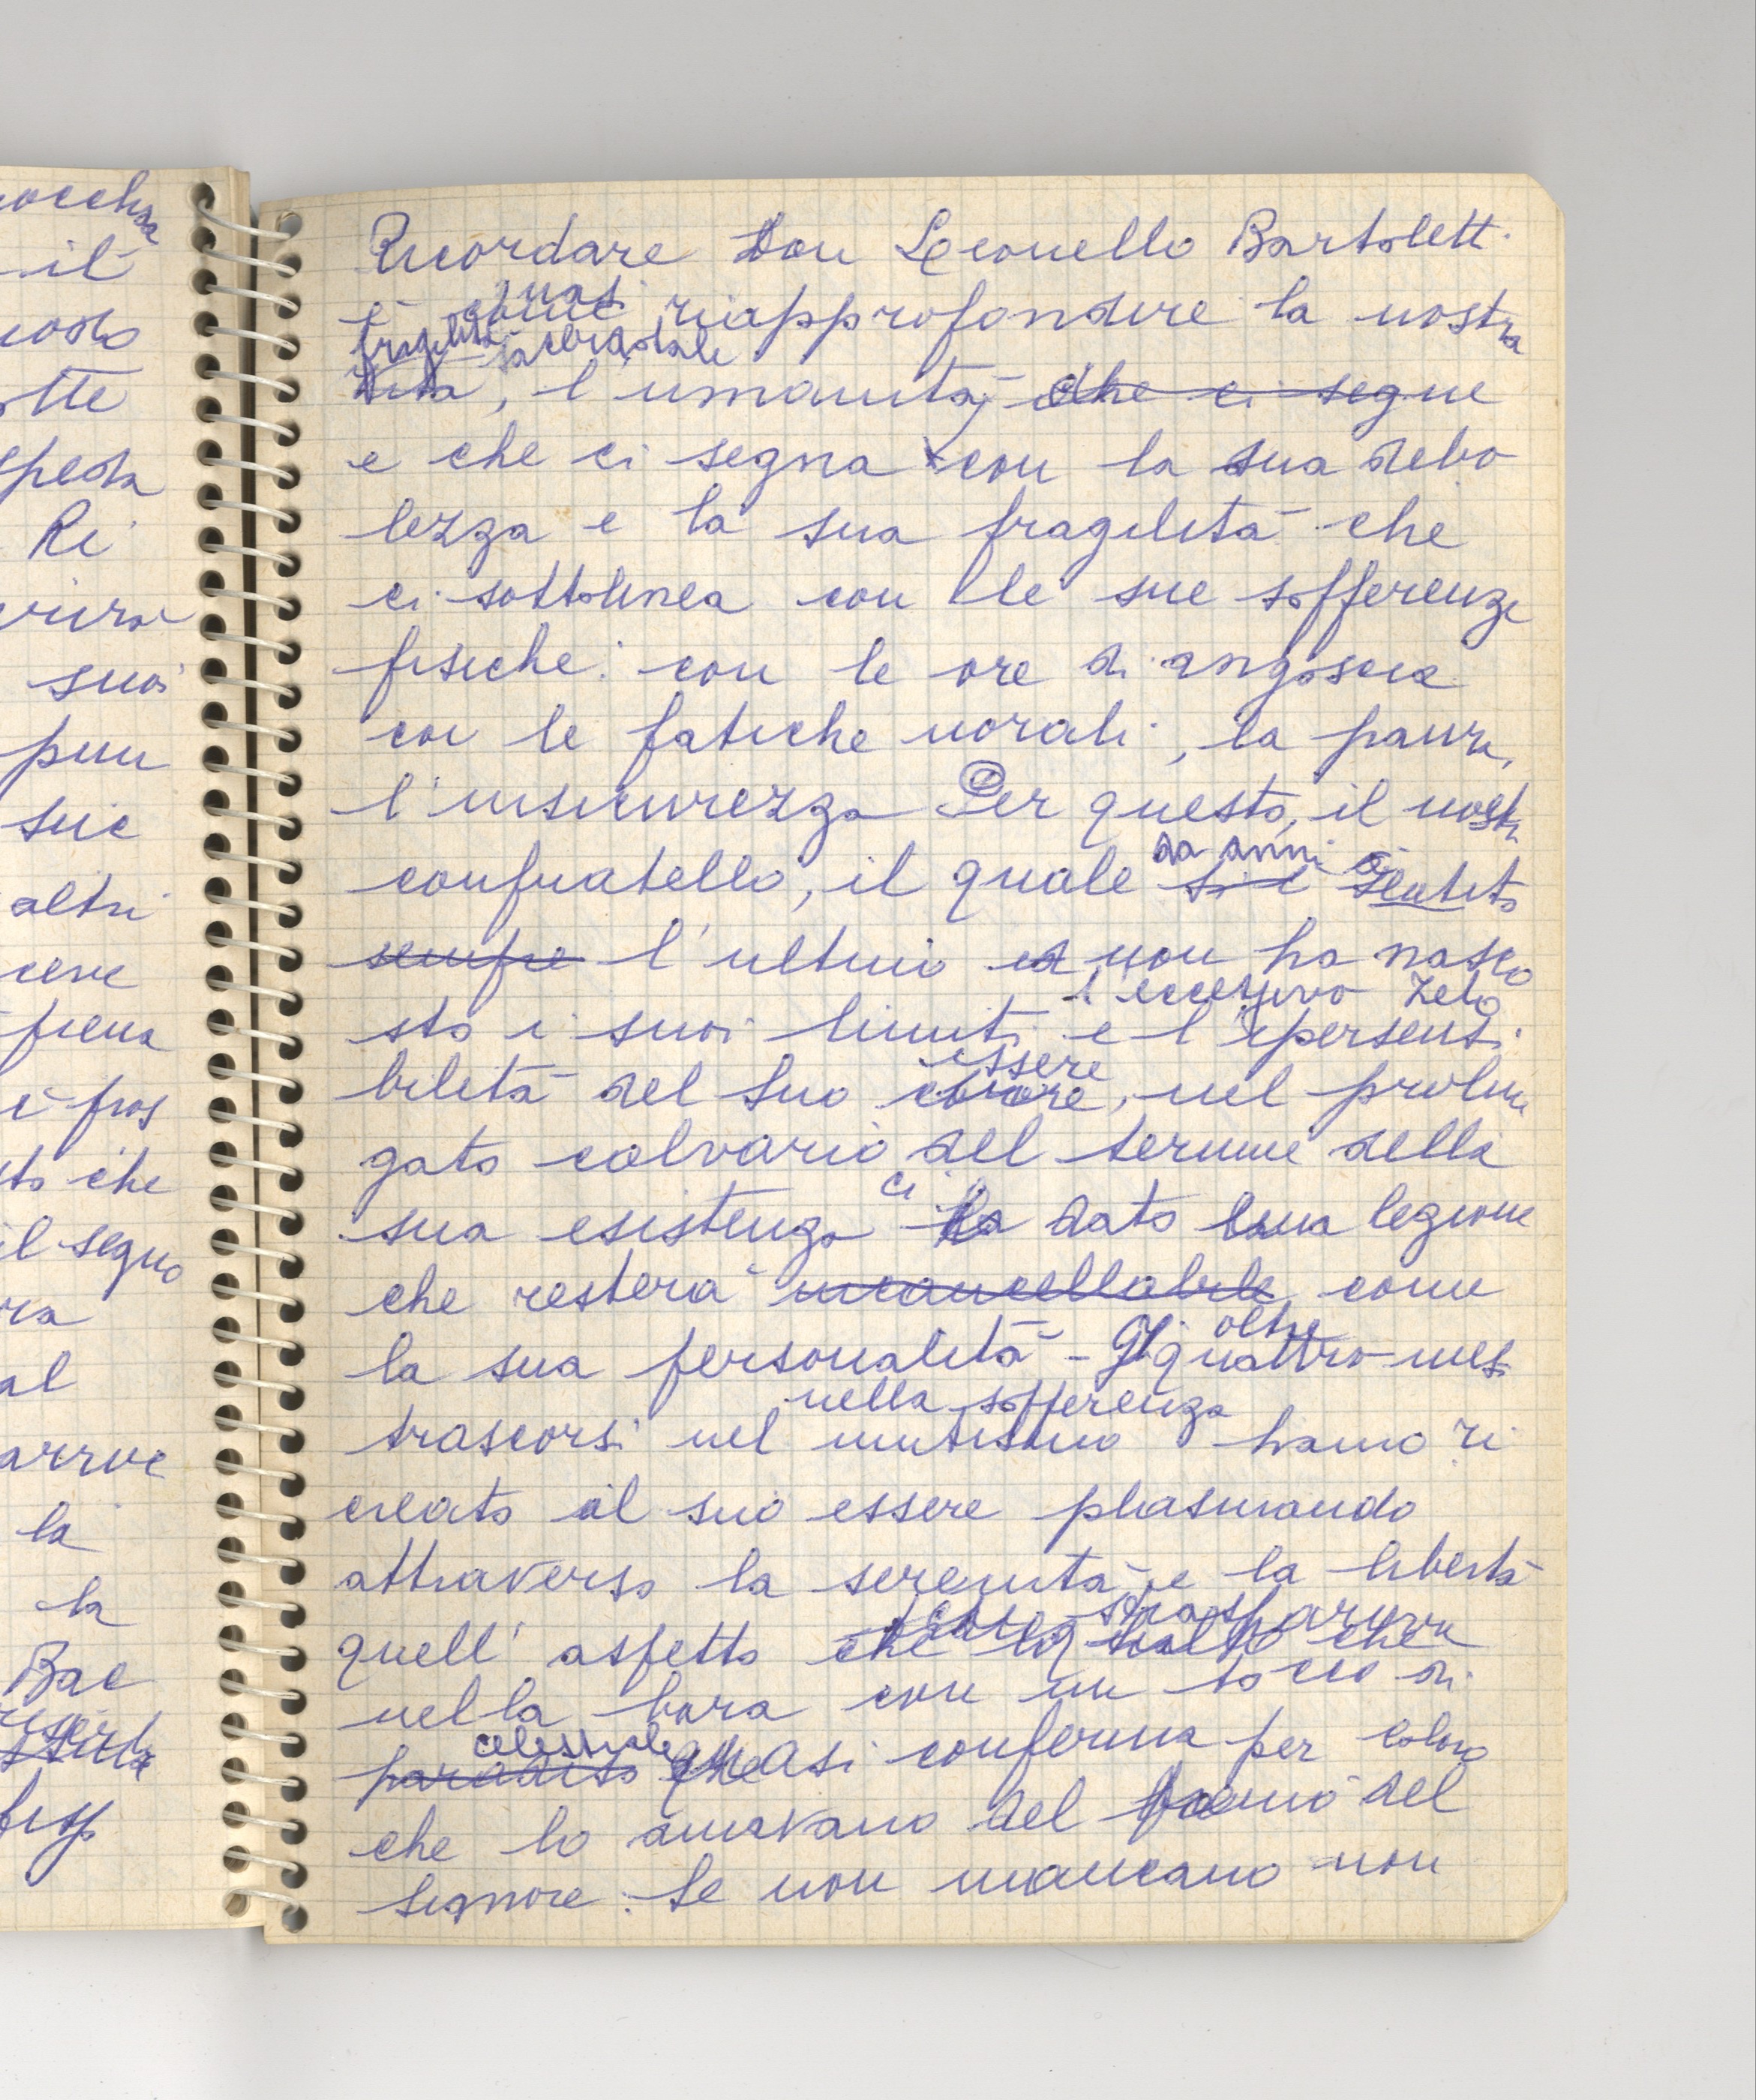 occhia
il
modo
otte
Ri
suoi
pun
sue
altri
ceve
piena
è pros
to che
il segno
ra
al
arrive
la
la
Bac
Ricordare Don Leonello Bartolett
è come quasi riapprofondire la nostra
fragilità sacerdotale
vita, l'umanità, che ci segue
e che ci segna con la sua debo
lezza e la sua fragilità che
ci sottolinea con le sue sofferenze
fisiche: con le ore di angoscia
con le fatiche morali, la paura,
l'insicurezza Per questo, il nostro
da anni
confratello, il quale si è sentito
sempre l'ultimo e non ha nasco
l'eccessivo zelo
sto i suoi limiti e l'ipersensi
essere
bilità del suo cuore, nel prolun
gato calvario del termine della
ci
sua esistenza ha dato una lezione
che resterà incancellabile come
oltre
la sua personalità - Gli quattro mesi
nella sofferenza
trascorsi nel mutismo hanno ri
creato il suo essere plasmando
attraverso la serenità e la libertà
traspariva
quell'aspetto che
nella bara con un tocco di
celestiale
paradiso quasi conferma per coloro
che lo amavano del bacio del
Signore. Se non mancano non